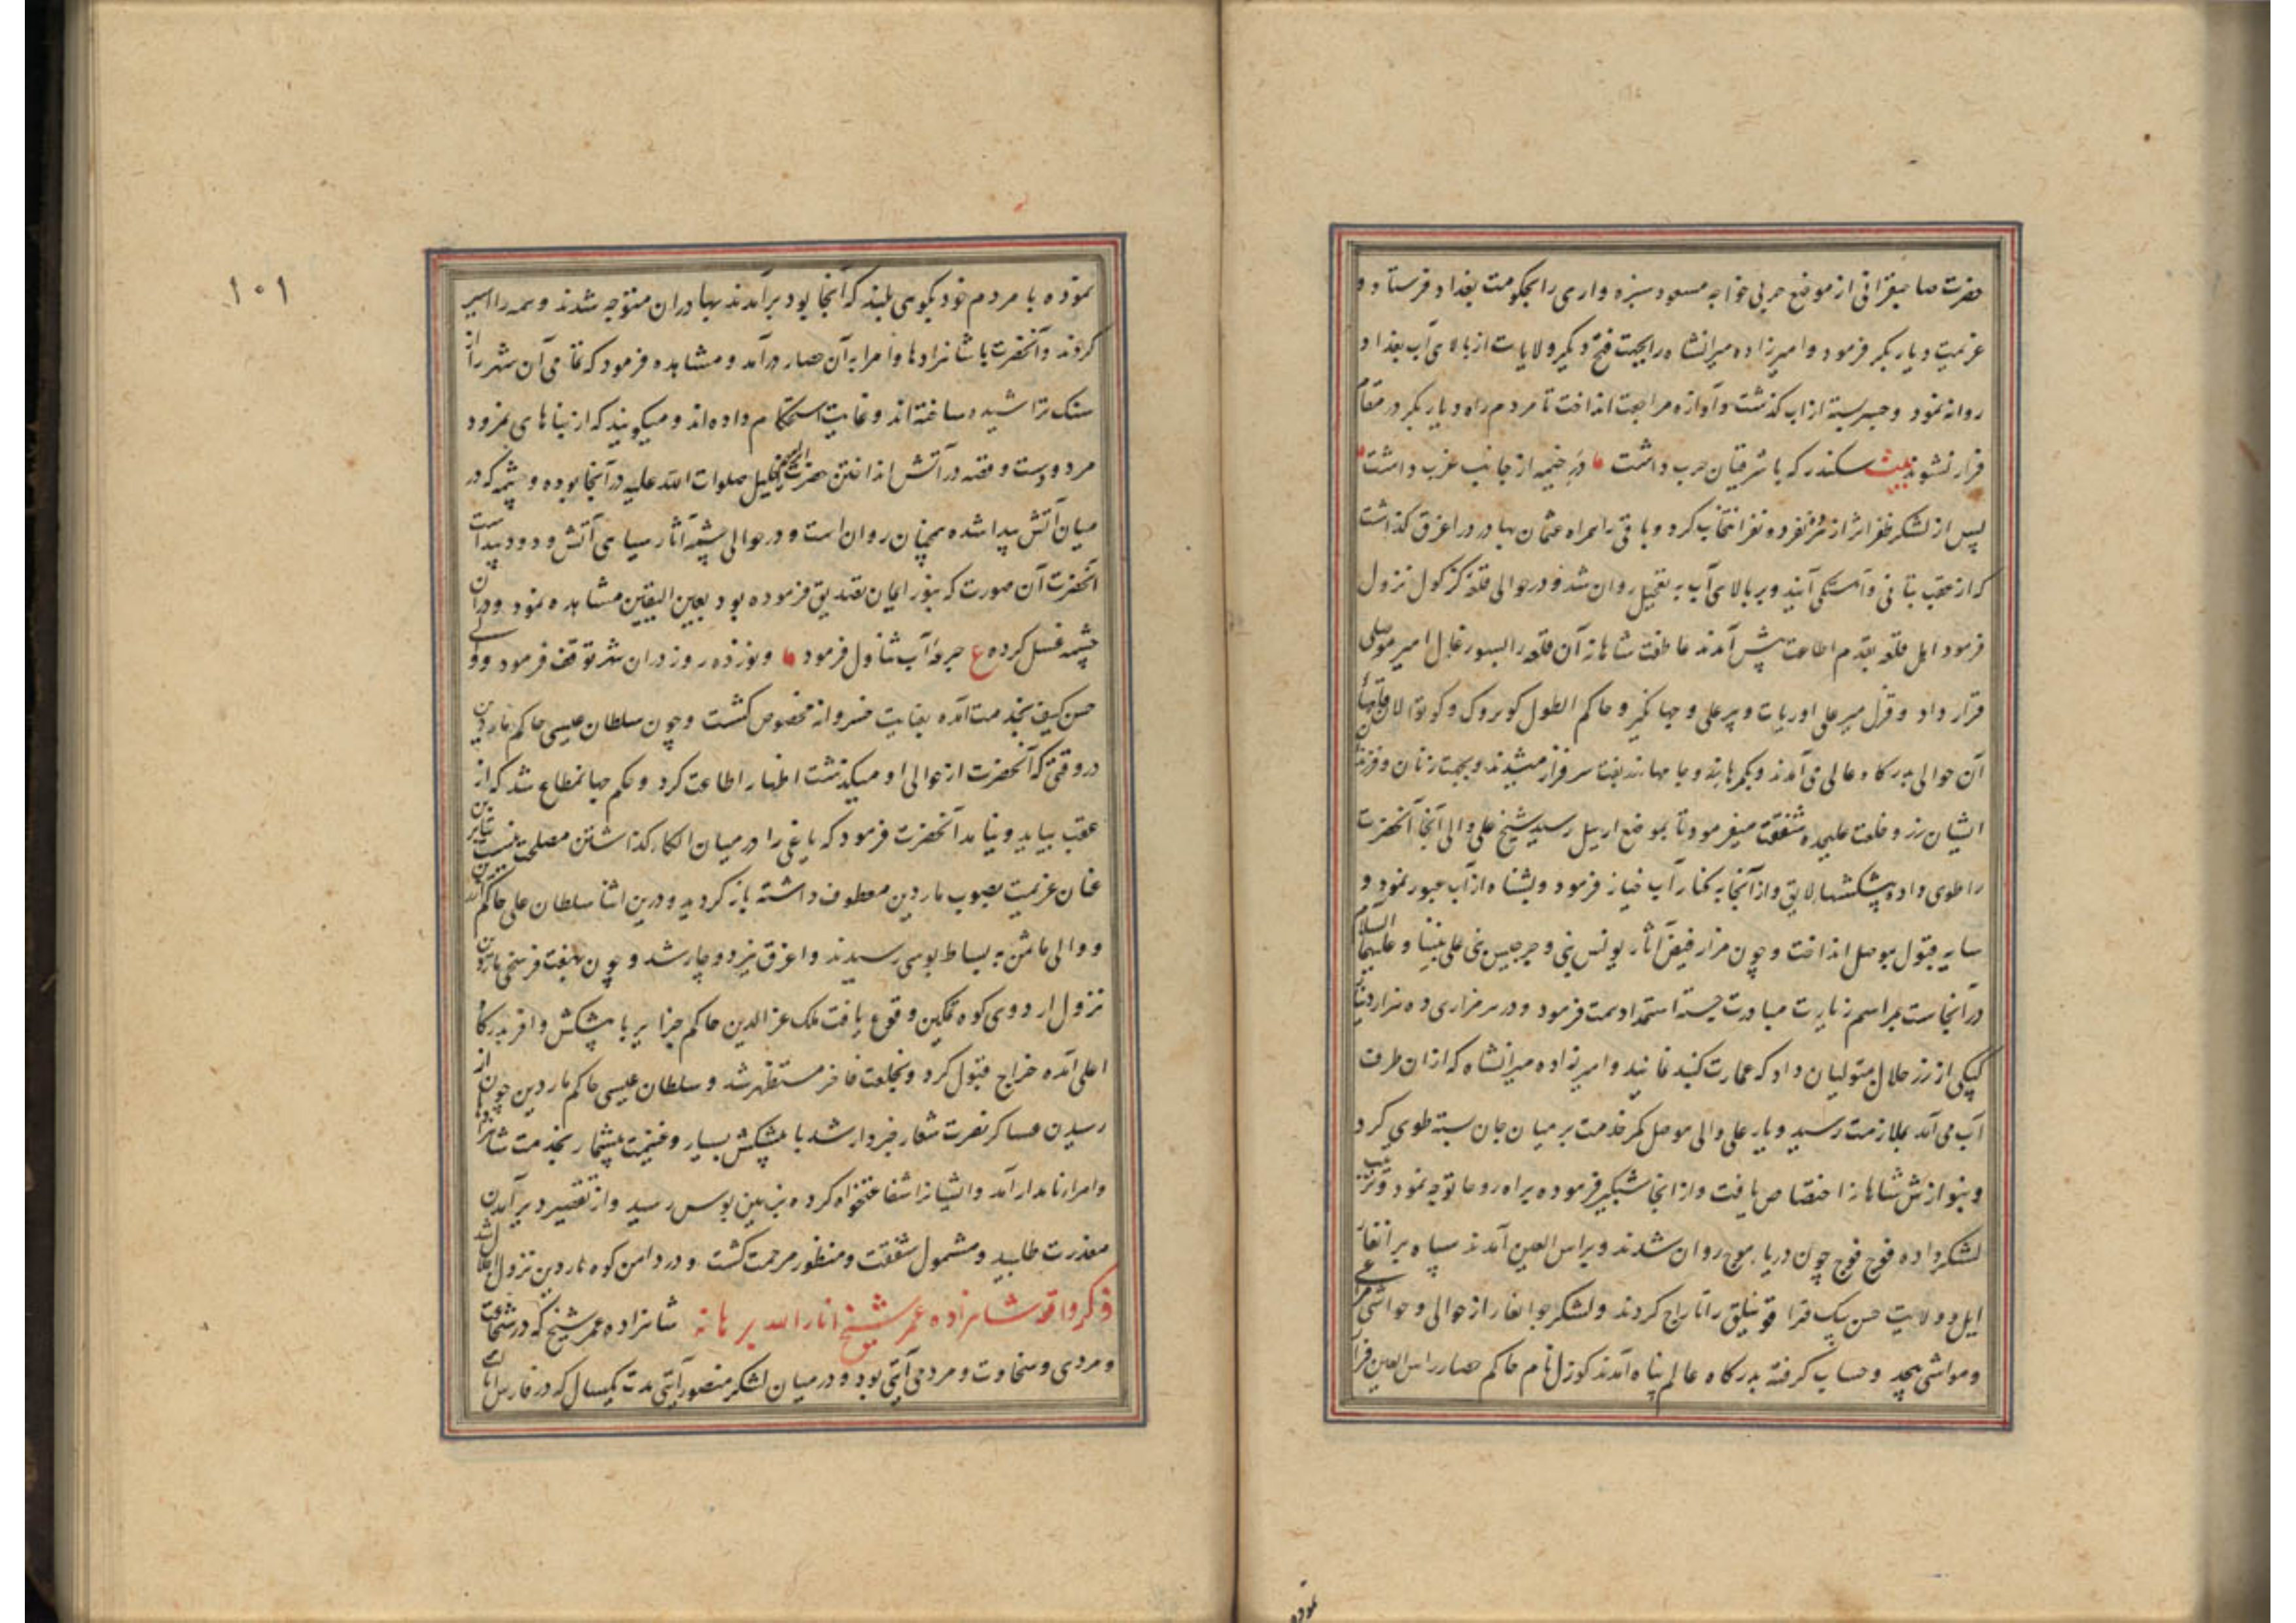 حضرت صاحبقرانی از موضع حربی خواجه مسعود سبزه واری را بحکومت بغداد فرستاد و
عزیمت دیار بکر فرمود و امیرزاده میرانشاه را بجهت فتح دیگر ولایات از بالای آب بغداد
روانه نمود و جسر بسته از اب گذشت و آوازه مراجعت انداخت تا مردم راه دیار بکر در مقام
فرار نشوند بیت سکندر که با شرقیان حرب داشت در خیمه از جانب غرب داشت
پس از لشکر ظفر اثر از هر ده نفر دو نفر انتخاب کرد و باقی را همراه عثمان بهادر در اغرق گذاشت
که از عقب بتانی و آهستگی آیند و بر بالای آب به تعجیل روان شد و در حوالی قلعه کرکوک نزول
فرمود اهل قلعه بقدم اطاعت پیش آمدند عاطفت شاهانه آن قلعه را بسیورغال امیر موصلی
قرار داد و میر علی اوریات و پیر علی و جهانگیر و حاکم الطون کوپروک و کوتوالان قلعهای
آن حوالی بدرگاه عالی می آمدند و بکمرها و جامها سرفراز میشدند و بجهت زنان و فرزندان
ایشان زر و خلعت علیحده شفقت میفرمود تا بموضع اربیل رسید شیخ علی والی آنجا آنحضرت
را طوی داده پیشکشها لایق و از آنجا به کنار آب فرمود و بشناه از آب عبور نمود و
سایه قبول بموصل انداخت و چون مزار فیض آثار یونس نبی و جرجیس نبی علی نبینا و علیهما السلام
در آنجاست مراسم زیارت مبادرت جسته استمداد همت فرمود و در هر مزاری ده هزار دینار
کپکی از زر حلال متولیان داد که عمارت گنبد نمایند و امیرزاده میرانشاه که از ان طرف
آب می آمد بملازمت رسید و یار علی والی موصل کمر خدمت بر میان جان بسته طوی کرد
و بنوازش شاهانه اختصاص یافت و از انجا شبگیر فرموده براه روحا توجه نمود و ترتیب
لشکر داده فوج فوج چون دریا بموج روان شدند و براس العین آمدند سپاه برانغار
ایل و ولایت حسن بیک قرا قوینلیق را تاراج کردند و لشکر جوانغار از حوالی و حواشی
و مواشی بیحد و حساب گرفته بدرگاه عالم پناه آمدند کوزل نام حاکم حصار راس العین فرار
نموده
۱۰۱
نموده با مردم خود بکوهی بلند که آنجا بود برآمدند بهادران متوجه شدند و همه را اسیر
کردند و آنحضرت با شاهزادها و امرا به آن حصار درآمد و مشاهده فرمود که تمامی آن شهر را از
سنگ تراشیده ساخته اند و غایت استحکام داده اند و میگویند که از بناهای نمرود
مردودست و قصه در آتش انداختن حضرت ابرهیم خلیل صلوات الله علیه در آنجا بوده و چشمه که در
میان آتش پیدا شده همچنان روان است و در حوالی چشمه آثار سیاهی آتش و دود پیداست
آنحضرت آن صورت که بنور ایمان تصدیق فرموده بود بعین الیقین مشاهده نمود و در ان
چشمه غسل کرده ع جرعه آب تناول فرمود و نوزده روز در ان شهر توقف فرمود و والی
حسن کیف بخدمت آمده بعنایت خسروانه مخصوص گشت و چون سلطان عیسی حاکم ماردین
در وقتی که آنحضرت از حوالی او میگذشت اظهار اطاعت کرد و حکم جهانمطاع شد که از
عقب بیاید و نیامد آنحضرت فرمود که یاغی را در میان الکاء گذاشتن مصلحت نیست بنابرین
عنان عزیمت بصوب ماردین معطوف داشته باز گردید و درین اثنا سلطان علی حاکم
و والی به بساط بوسی رسیدند و اغرق نیز دوچار شد و چون بهفت فرسخی ماردین
نزول اردوی کوه تمکین وقوع یافت ملک عز الدین حاکم جزایر با پیشکش وافر بدرگاه
اعلی آمده خراج قبول کرد و بخلعت فاخر مستظهر شد و سلطان عیسی حاکم ماردین چون از
رسیدن عساکر نصرت شعار خبردار شد با پیشکش بسیار و غنیمت بیشمار بخدمت شاهزادها
و امراء نامدار آمد و ایشانرا شفاعتخواه کرده بزمین بوس رسید و از تقصیر دیر آمدن
معذرت طلبید و مشمول شفقت و منظور مرحمت گشت و در دامن کوه ماردین نزول اجلال شد
ذکر واقعه شاهزاده عمر شیخ انار الله برهانه شاهزاده عمر شیخ که در شجاعت
و مردی و سخاوت و مردمی آیتی بود و در میان لشکر منصور آیتی مدت یکسال که در فارس